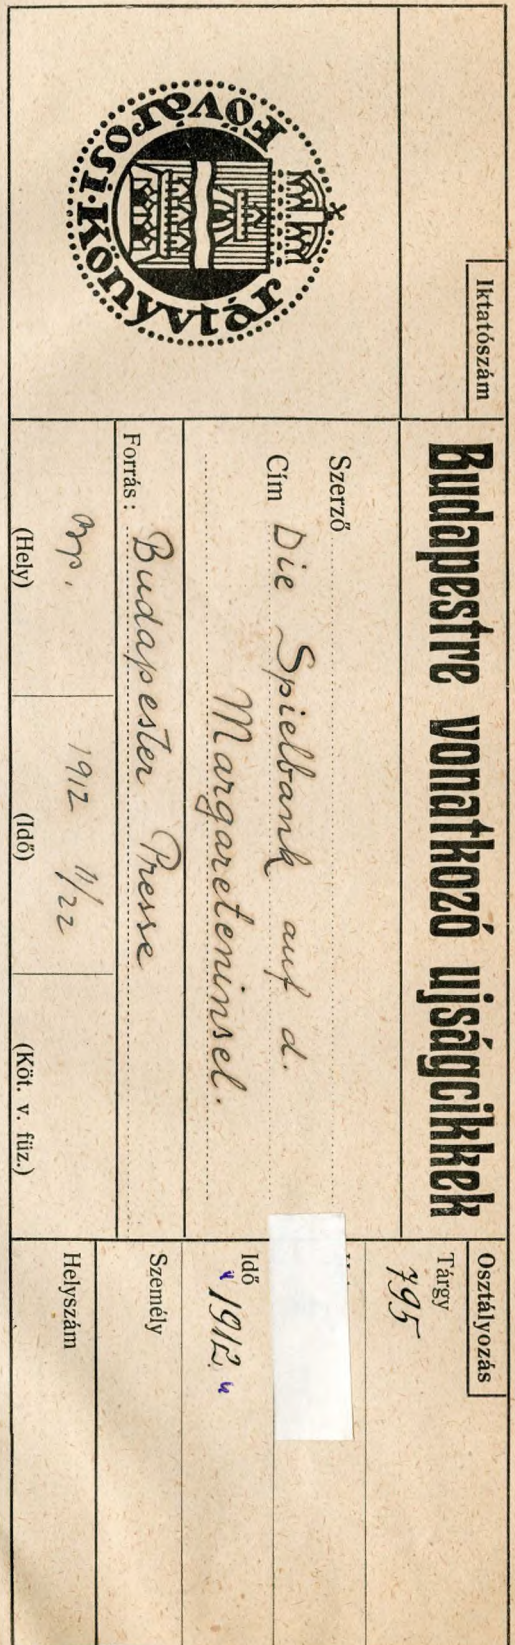 Fővárosi·Könyvtár
Iktatószám
Budapestre vonatkozó ujságcikkek
Szerző
Cím Die Spielbank auf d.
Margareteninsel.
Forrás: Budapester Presse
Bp. 1912 11/22
(Hely) (Idő) (Köt. v. füz.)
Osztályozás
Tárgy
795
Idő
"1912."
Személy
Helyszám